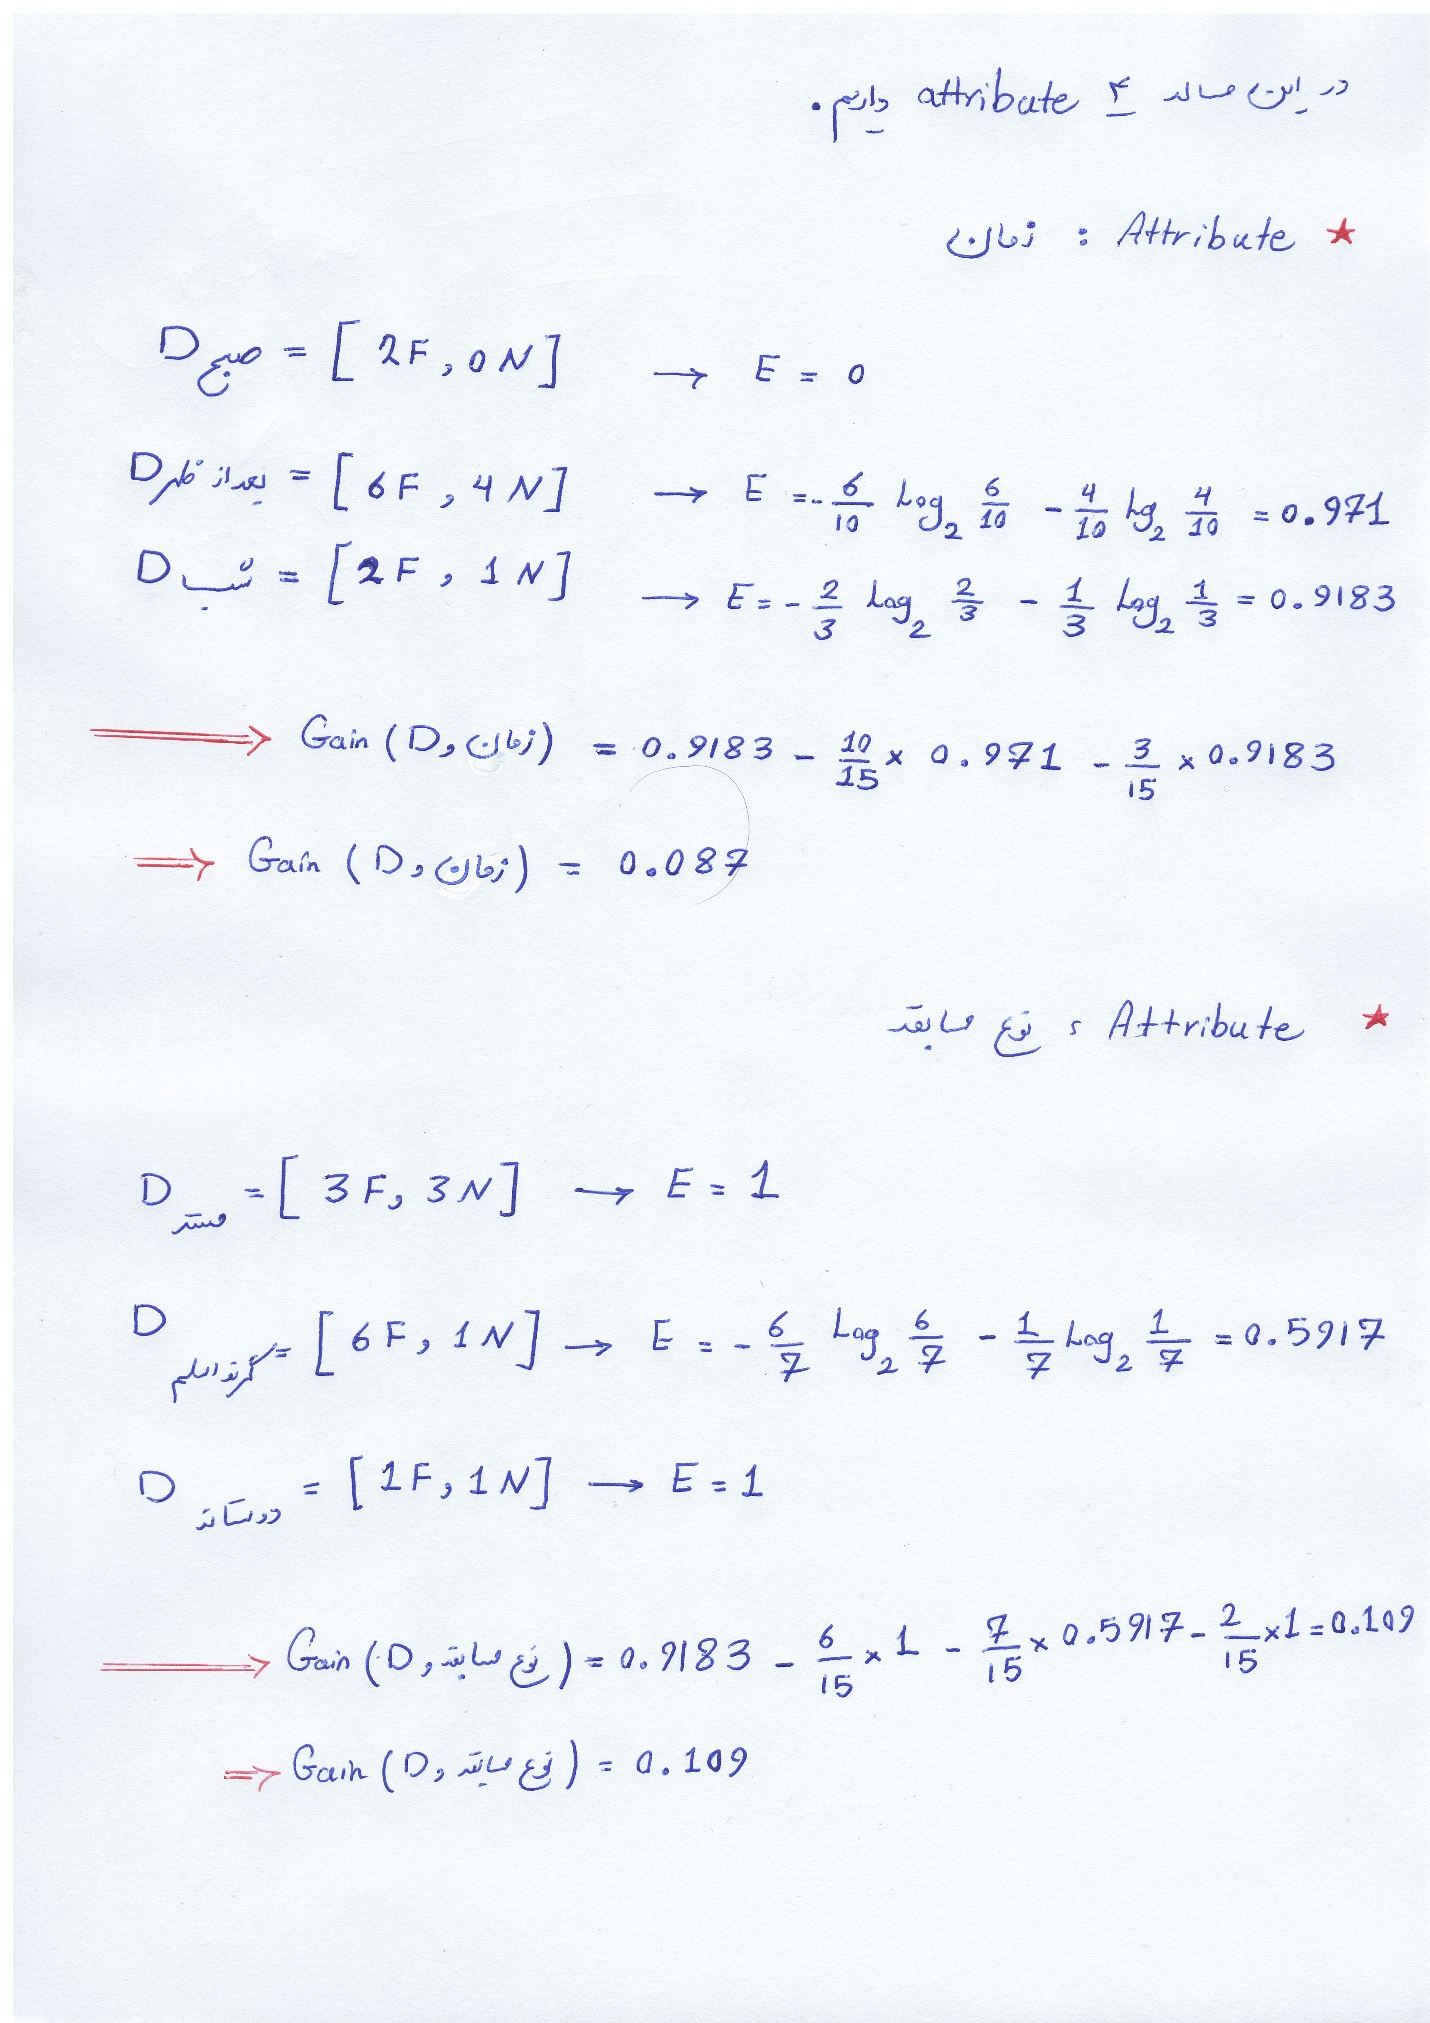 در این مساله ۴ attribute داریم.
★ Attribute : زمان
D صبح = [ 2F , 0 N ] → E = 0
D بعد از ظهر = [ 6F , 4 N ] → E = - 6/10 Log₂ 6/10 - 4/10 Log₂ 4/10 = 0.971
D شب = [ 2F , 1 N ] → E = - 2/3 Log₂ 2/3 - 1/3 Log₂ 1/3 = 0.9183
⇒ Gain ( D , زمان ) = 0.9183 - 10/15 × 0.971 - 3/15 × 0.9183
⇒ Gain ( D , زمان ) = 0.087
★ Attribute : نوع مسابقه
D مستر = [ 3 F , 3 N ] → E = 1
D گرند اسلم = [ 6 F , 1 N ] → E = - 6/7 Log₂ 6/7 - 1/7 Log₂ 1/7 = 0.5917
D دوستانه = [ 1 F , 1 N ] → E = 1
⇒ Gain ( D , نوع مسابقه ) = 0.9183 - 6/15 × 1 - 7/15 × 0.5917 - 2/15 × 1 = 0.109
⇒ Gain ( D , نوع مسابقه ) = 0.109